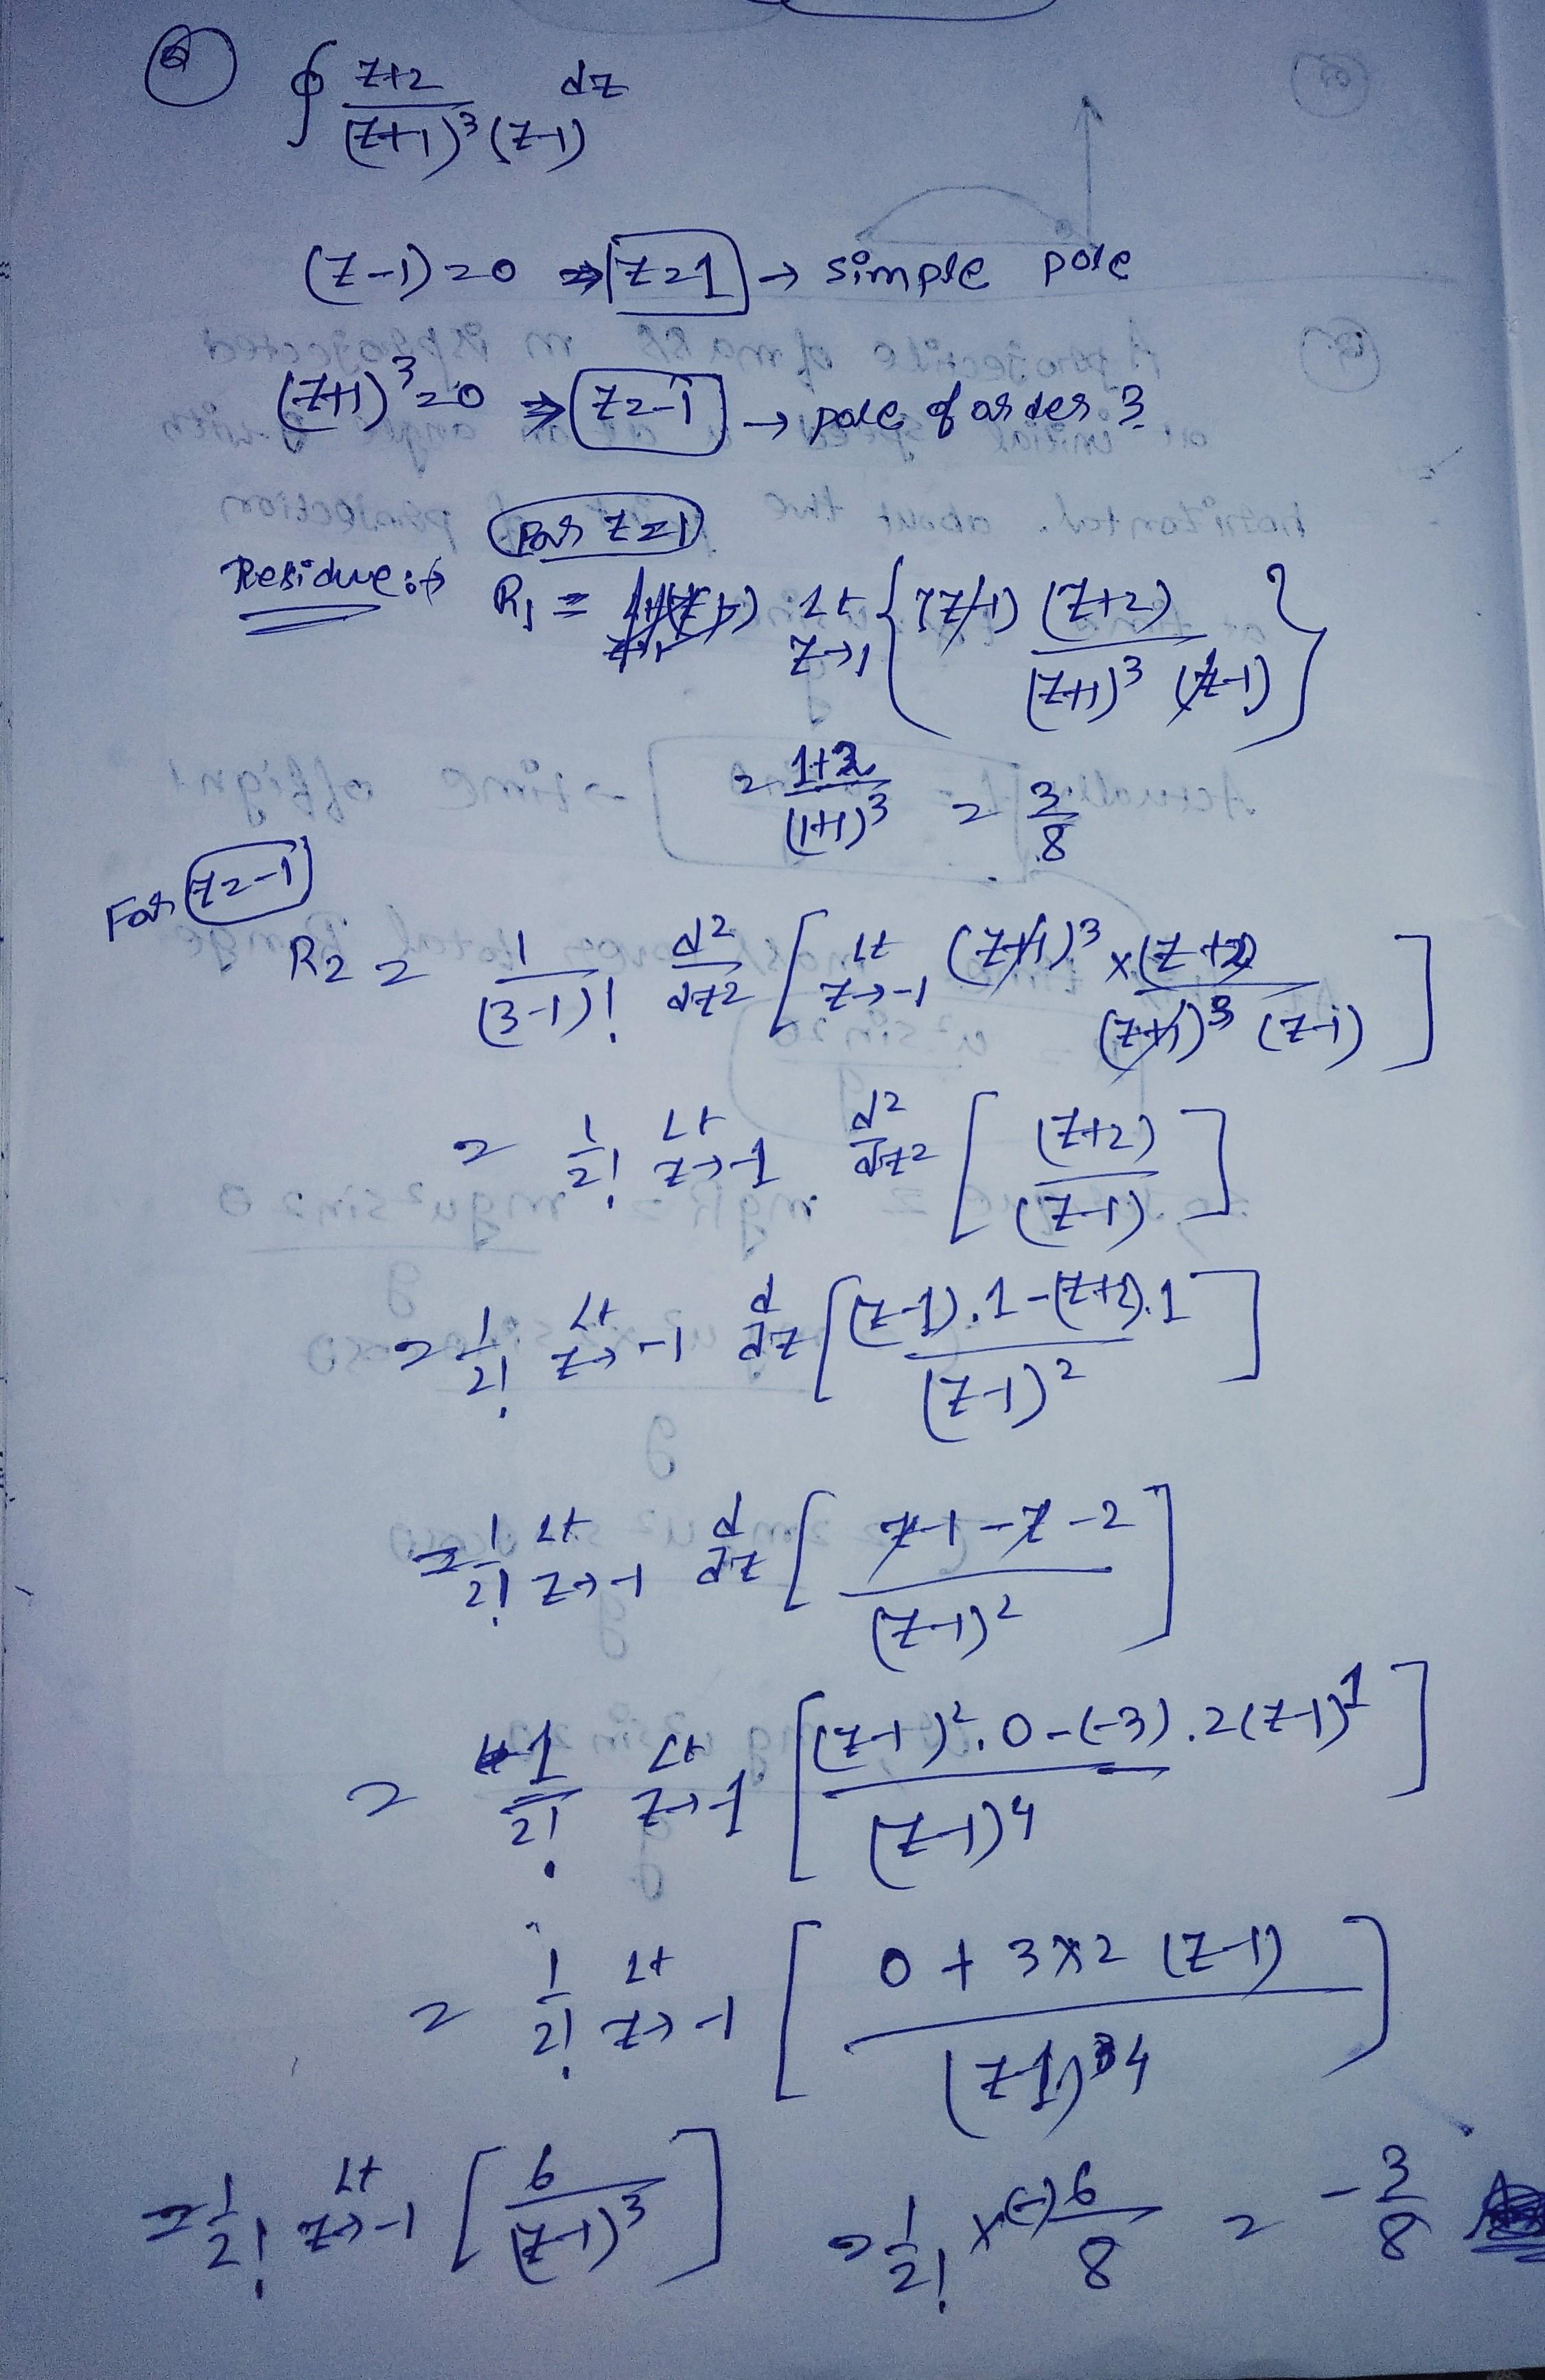 Q ∮ (z+2)/((z+1)³(z-1)) dz
(z-1)=0 ⇒ z=1 → simple pole
(z+1)³=0 ⇒ z=-1 → pole of order 3
For z=1
Residue:→ R₁ = Lt z→1 { (z-1) (z+2)/((z+1)³ (z-1)) }
= (1+2)/(1+1)³ = 3/8
For z=-1
R₂ = 1/(3-1)! d²/dz² [ Lt z→-1 (z+1)³ × (z+2)/((z+1)³ (z-1)) ]
= 1/2! Lt z→-1 d²/dz² [ (z+2)/(z-1) ]
= 1/2! Lt z→-1 d/dz [ ((z-1).1-(z+2).1)/(z-1)² ]
= 1/2! Lt z→-1 d/dz [ (z-1-z-2)/(z-1)² ]
= 1/2! Lt z→-1 [ ((z-1)².0-(-3).2(z-1)¹)/(z-1)⁴ ]
= 1/2! Lt z→-1 [ (0+3×2(z-1))/(z-1)⁴ ]
= 1/2! Lt z→-1 [ 6/(z-1)³ ] = 1/2! × (-)6/8 = -3/8